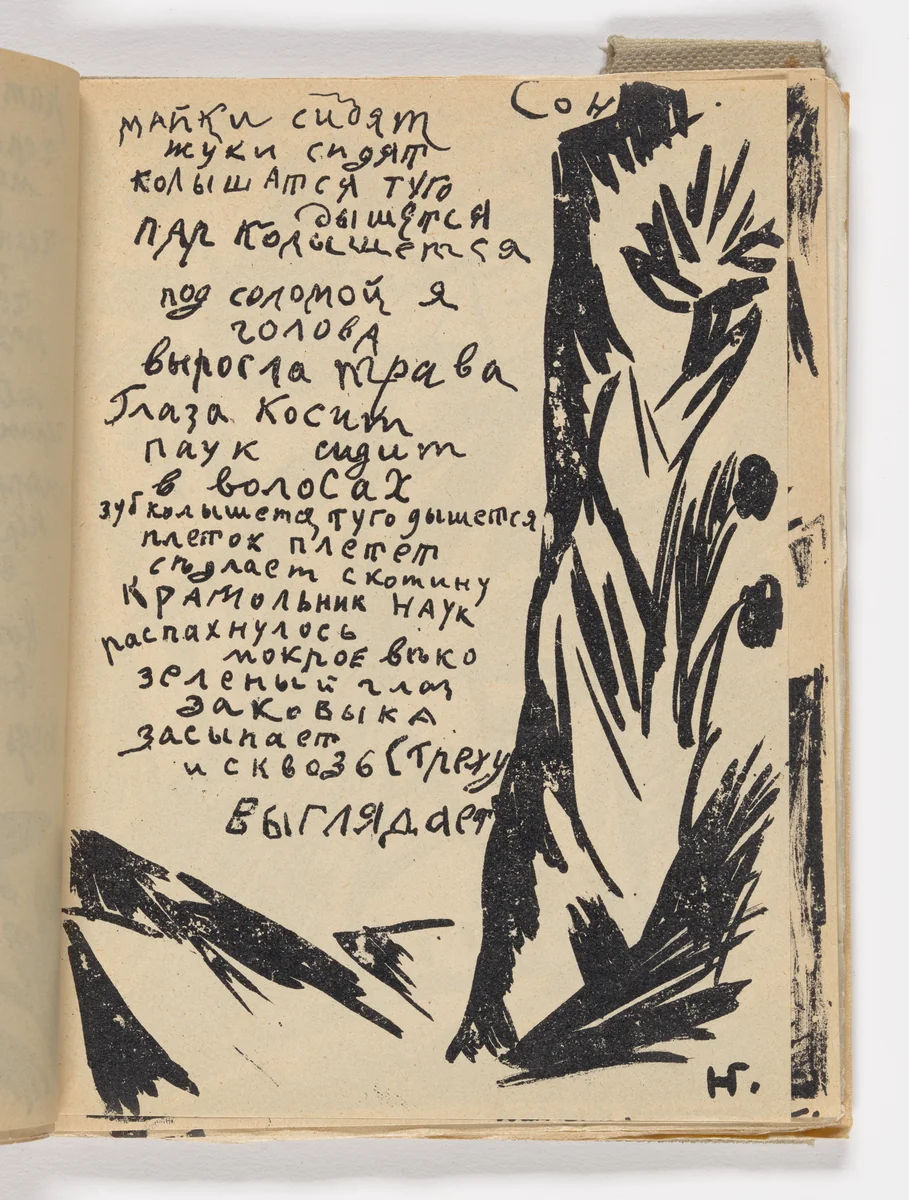 Сон.
майки сидят
жуки сидят
колышатся туго
дышется
пар колышется
под соломой я
голова
выросла трава
Глаза косит
паук сидит
в волосах
зуб колышется туго дышется
плеток плетет
сѣдлает скотину
Крамольник наук
распахнулось
мокрое вѣко
зеленый глаз
Заковыка
засыпает
и сквозь стреху
выглядает